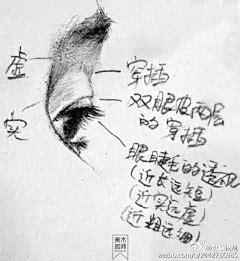 虚
穿插
双眼皮两层
的穿插
实
眼睫毛的透视
(近长远短)
(近实远虚)
(近粗远细)
美术
客师
weibo.com/u/2442786985